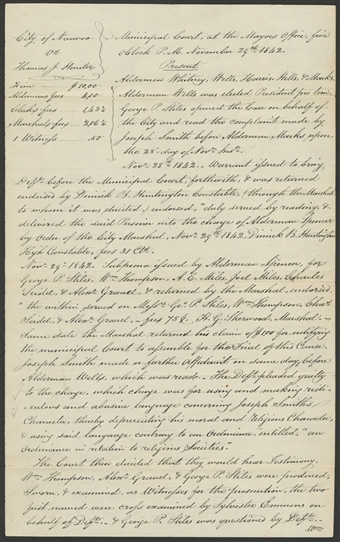 City of Nauvoo
vs
Thomas J. Hunter
Fine $10,00
Aldermans fees 2,00
Clerks fees
Marshals fees
1 Witness .50
Municipal Court, at the Mayors Office, five
O'clock P. M. November 29th 1842.
Present,
Aldermen Whitney, Wells, Harris, Hills, & Marks,
Alderman Wells was elected President pro tem.
George P. Stiles opened the Case on behalf of
the City and read the complaint made by
Joseph Smith before Alderman Marks upon
the 28th day of Novr Inst.
Novr 28th 1842. Warrant issued to bring
Deft before the Municipal Court forthwith, & was returned
endorsed by Dimick B. Huntington Constable, (through the Marshal
to whom it was directed,) endorsed, "duly served by reading, &
delivered the said Prisoner into the charge of Alderman Spencer
by order of the City Marshal, Novr 29th 1842, Dimick B. Huntington
High Constable, fees 21 Cts.
Novr 29th 1842. Subpoena issued by Alderman Spencer, for
George P. Stiles, Wm Thompson, A. E. Miles, Joel Miles, Charles
Seidel, & Alexr Gravel, & returned by the Marshal, endorsed
"the within served on Messrs Geo. P. Stiles, Wm Thompson, Chas
Seidel, & Alexr Gravel, — fees 75¢. H. G. Sherwood, Marshal. —
Same date the Marshal returned his claim of $1,00 for notifying
the municipal Court to assemble for the trial of this Cause.
Joseph Smith made a further Affidavit on same day before
Alderman Wells, which was read. — The Deft pleaded guilty
to the charge, which charge was for using and making ridi-
-culous and abusive language concerning Joseph Smiths
Character, thereby depreciating his moral and religious Character,
& using said language contrary to an Ordinance, entitled, "an
Ordinance in relation to religious Societies."
The Court then decided that they would hear Testimony.
Wm Thompson, Alexr Gravel, & George P. Stiles were produced,
Sworn, & examined, as Witnesses for the prosecution, the two
first named were cross examined by Sylvester Emmons on
behalf of Deft — & George P. Stiles was questioned by Deft —
Wm